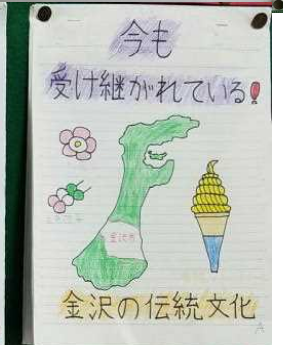 今も
受け継がれている!
金沢市
金沢の伝統文化
A